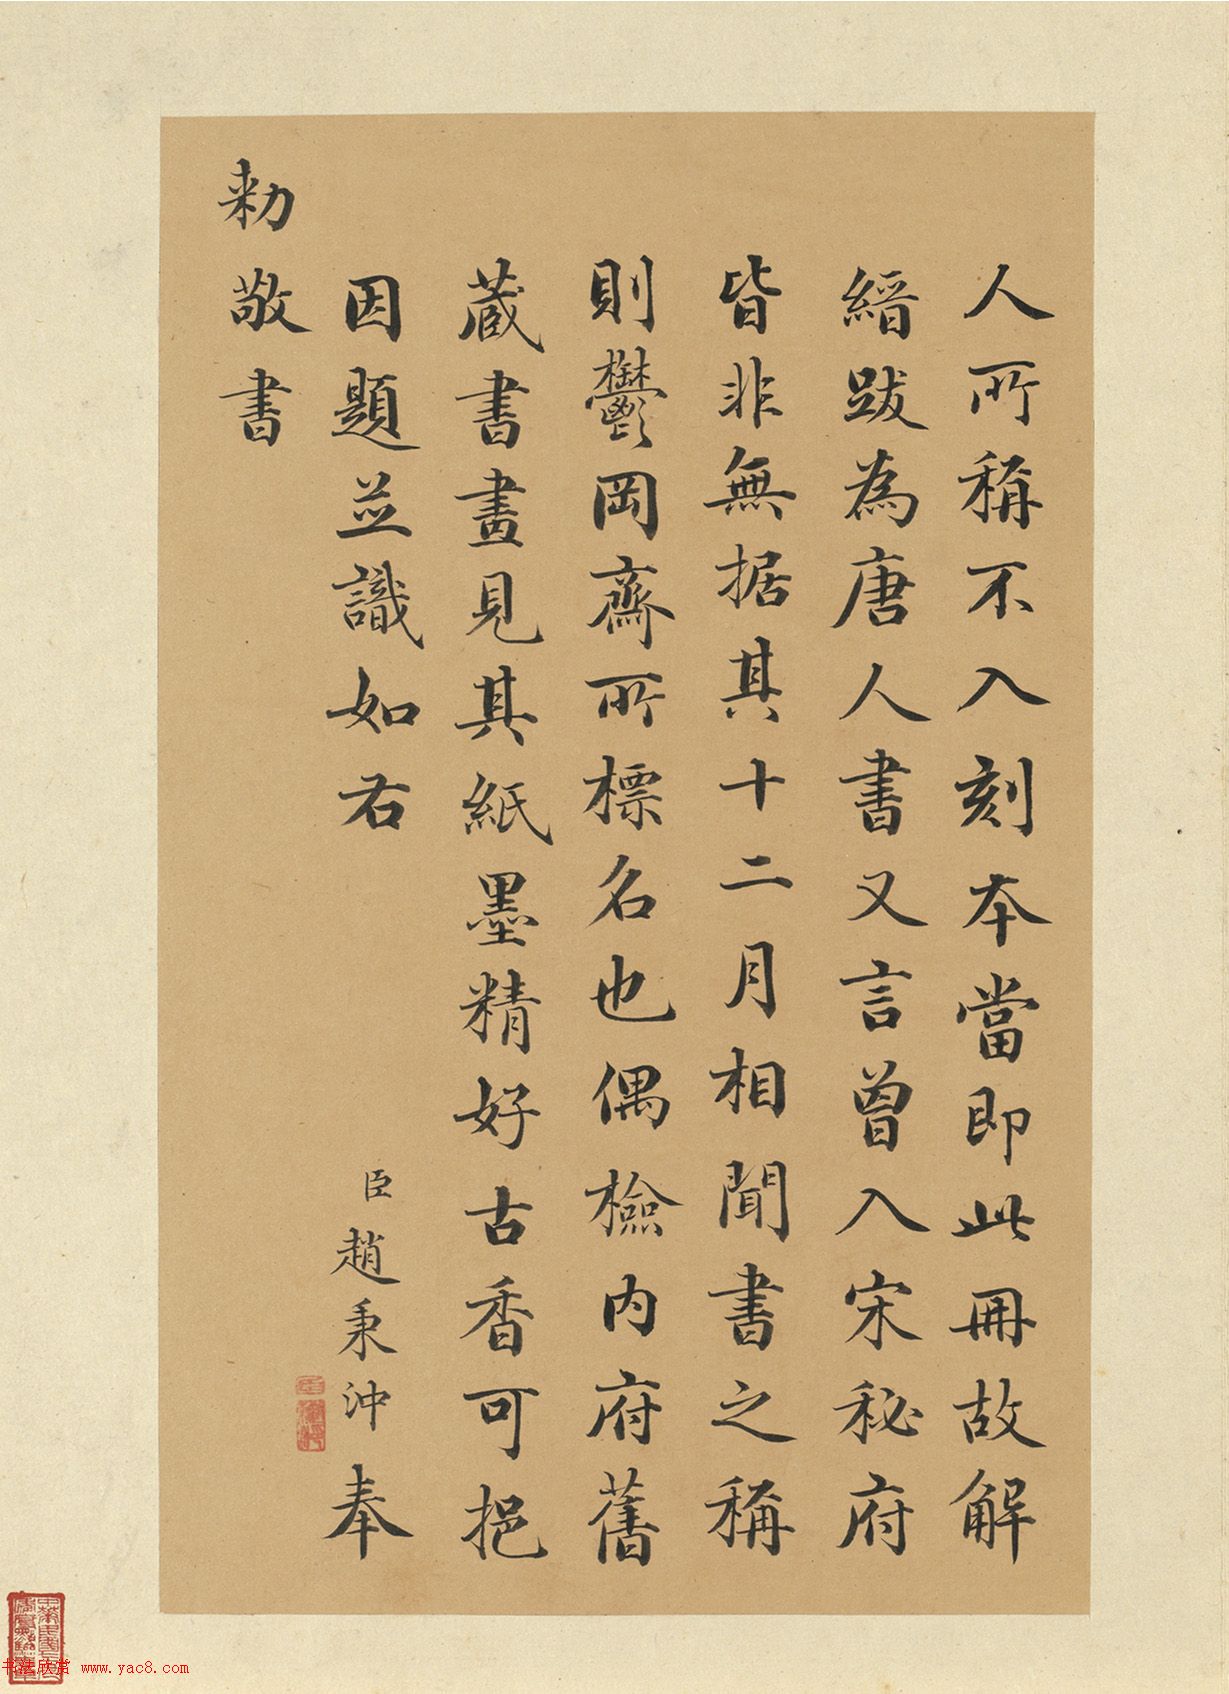 人所稱不入刻本當即此冊故解
縉跋為唐人書又言曾入宋秘府
皆非無据其十二月相聞書之稱
則鬱岡齋所標名也偶檢内府舊
蔵書畫見其紙墨精好古香可挹
因題並識如右
臣趙秉沖奉
勅敬書
书法欣赏 www.yac8.com